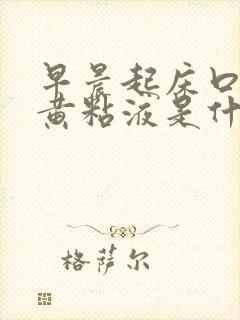 早晨起床口
黄粘液是什
格萨尔